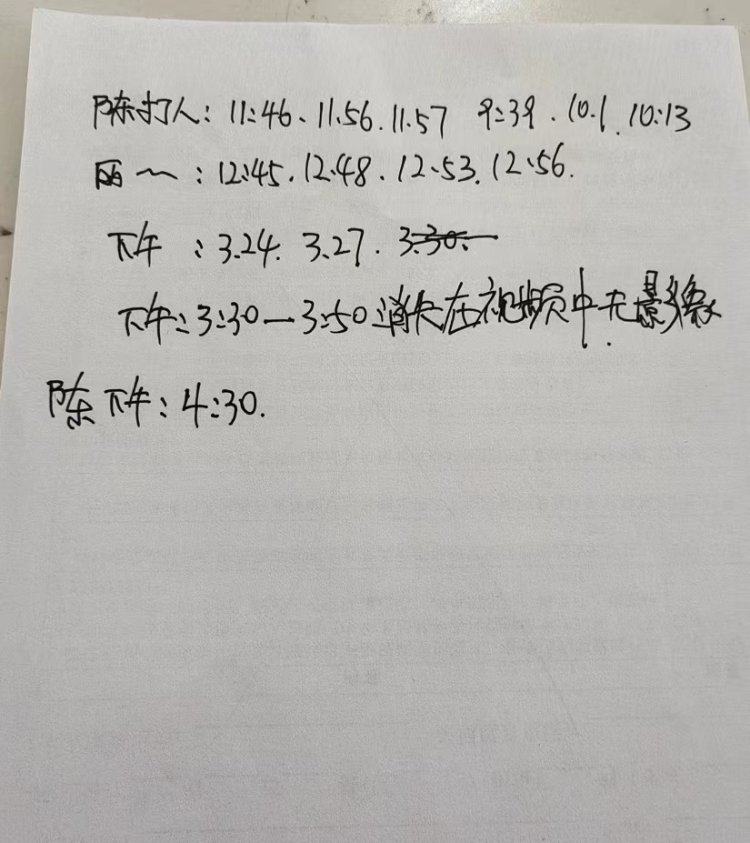 陈打人：11:46、11.56.11.57 9:39.10.1.10:13
丽〜：12:45.12.48.12.53.12.56.
下午：3.24. 3.27. 3.30.
下午：3:30—3:50消失在视频中无影像.
陈下午：4:30.